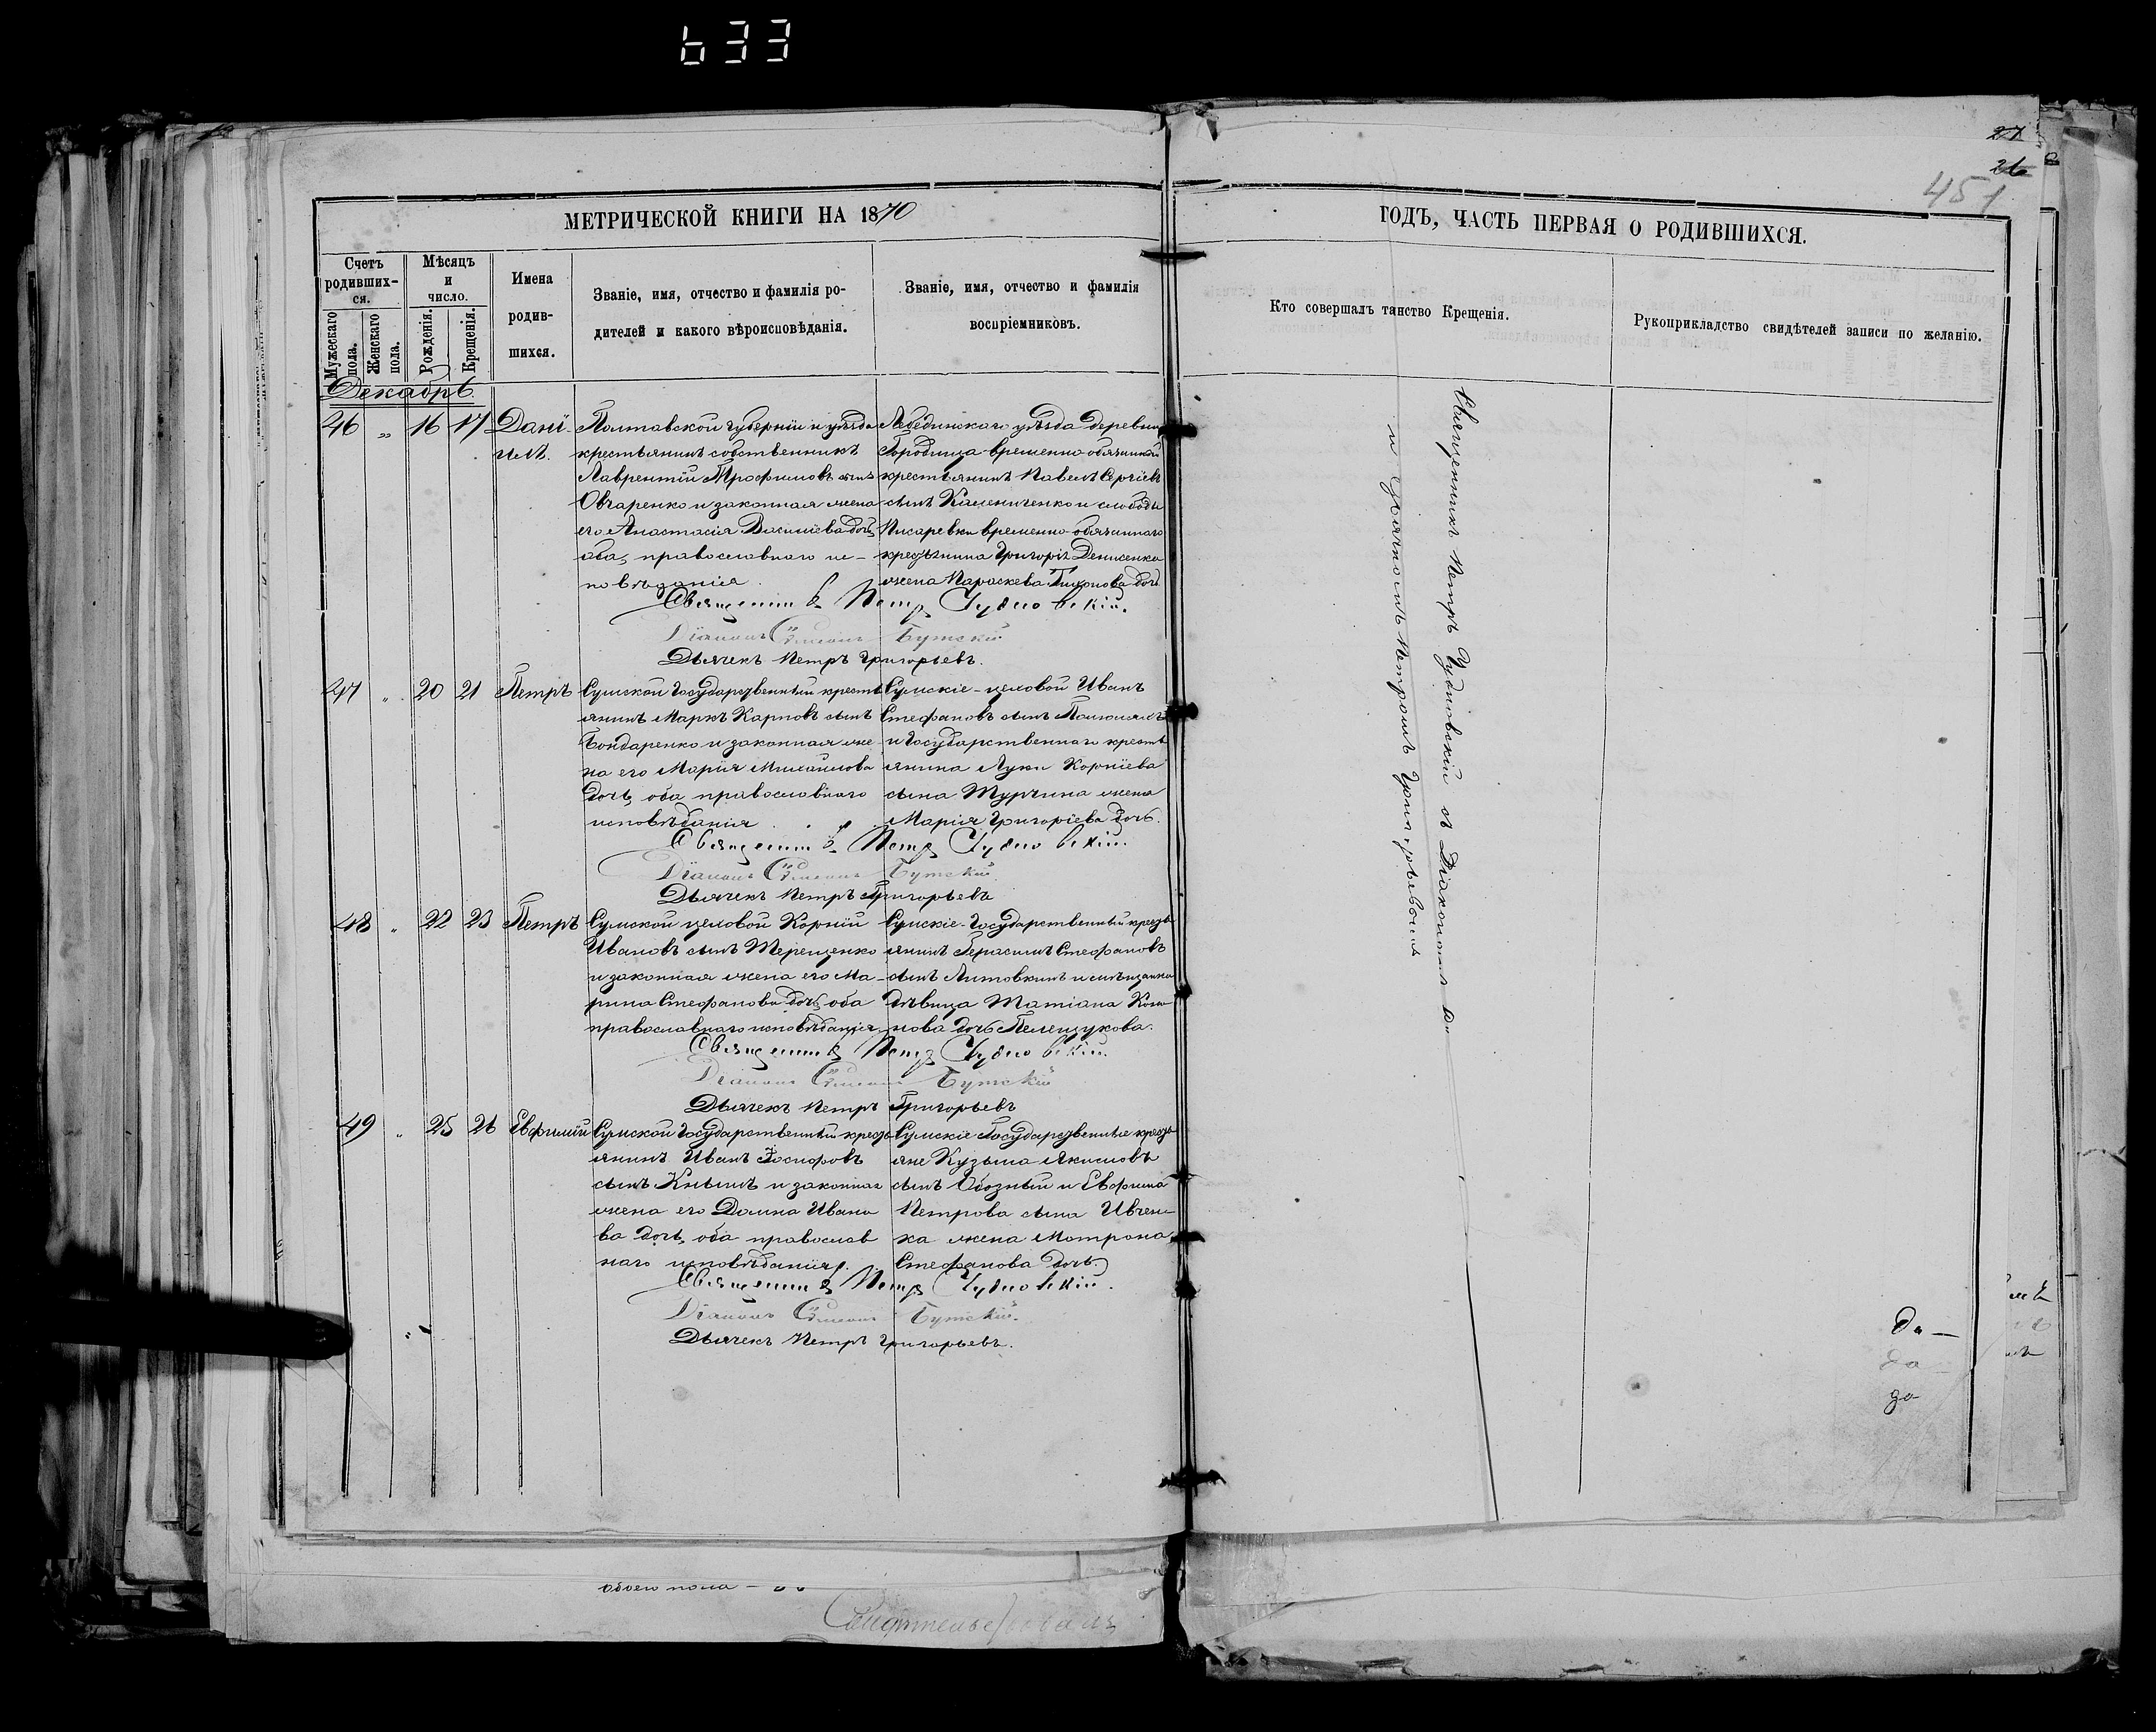 633
27
26
451
МЕТРИЧЕСКОЙ КНИГИ НА 1870
ГОДЪ, ЧАСТЬ ПЕРВАЯ О РОДИВШИХСЯ.
Счетъ родивших-ся.
Мужескаго пола.
Женскаго пола.
Мѣсяцъ и число.
Рожденія.
Крещенія.
Имена родив-шихся.
Званіе, имя, отчество и фамилія ро-
дителей и какого вѣроисповѣданія.
Званіе, имя, отчество и фамилія
воспріемниковъ.
Кто совершалъ таинство Крещенія.
Рукоприкладство свидѣтелей записи по желанію.
Декабрь
46 „ 16 17 Дані-
илъ.
Полтавской губерніи и уѣзда
крестьянинъ собственникъ
Лаврентій Трофимовъ сынъ
Овчаренко и законная жена
его Анастасія Василіева дочь,
оба, православнаго ис-
повѣданія.
Лебединскаго уѣзда деревни
Городища временно-обязанный
крестьянинъ Павелъ Сергіевъ
сынъ Калениченко и слободы
Писаревки временно-обязаннаго
крестьянина Григорія Денисенка
жена Параскева Тихонова дочь
Священникъ Петръ Чудновскій.
Діаконъ Симеонъ Бутскій
Дьячекъ Петръ Григорьевъ.
47 „ 20 21 Петръ
Сумской Государственный кресть
янинъ Маркъ Карповъ сынъ
Бондаренко и законная же-
на его Марія Михайлова
дочь, оба православнаго
исповѣданія
Сумскіе-цеховой Иванъ
Стефановъ сынъ
и Государственнаго кресть
янина Луки Корніева
сына Турчина жена
Марія Григоріева дочь.
Священникъ Петръ Чудновскій.
Діаконъ Симеонъ Бутскій.
Дьячекъ Петръ Григорьевъ
48 „ 22 23 Петръ
Сумской цеховой Корній
Ивановъ сынъ Терещенко
и законная жена его Ма-
рина Стефанова дочь, оба
православнаго исповѣданія
Сумскіе-Государственный кресть
янинъ Герасимъ Стефановъ
сынъ Литовкинъ и мѣщанка
дѣвица Татіана Коно
нова дочь Пелещукова.
Священникъ Петръ Чудновскій.
Діаконъ Симеонъ Бутскій
Дьячекъ Петръ Григорьевъ
49 „ 25 26 Евфимій
Сумской Государственный кресть
янинъ Иванъ
сынъ Книшъ и законная
жена его Домна Ивано
ва дочь, оба православ
наго исповѣданія.
Сумскіе Государственные кресть
яне Кузьма Якимовъ
сынъ Обозный и Евфима
Петрова сына Ивчен-
ка жена Матрона
Стефанова дочь.
Священникъ Петръ Чудновскій.
Діаконъ Симеонъ Бутскій.
Дьячекъ Петръ Григорьевъ.
Священникъ Петръ Чудновскій съ Діакономъ
и Дьячкомъ Петромъ Григорьевымъ
да
да
да
обоего пола –